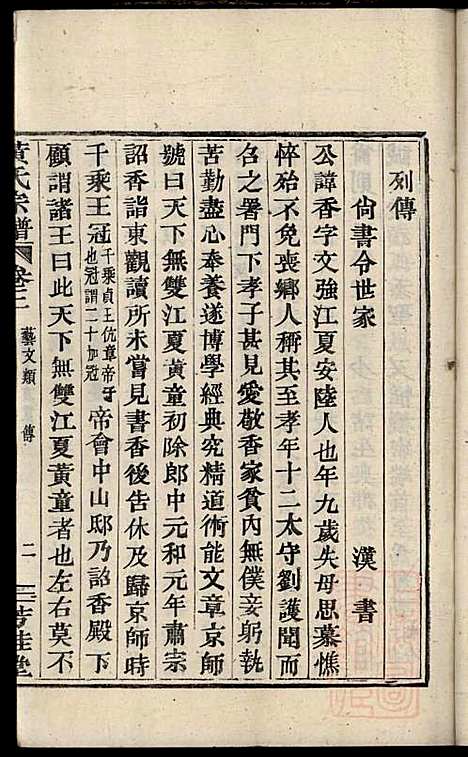 列傳
尙書令世家　漢書
公諱香字文強江夏安陸人也年九歲失母思慕憔
悴殆不免喪鄉人稱其至孝年十二太守劉護聞而
召之署門下孝子甚見愛敬香家貧內無僕妾躬執
苦勤盡心奉養遂博學經典究精道術能文章京師
號曰天下無雙江夏黃童初除郎中元和元年肅宗
詔香詣東觀讀所未嘗見書香後告休及歸京師時
千乘王冠千乘貞王伉章帝子也冠謂二十加冠帝會中山邸乃詔香殿下
顧謂諸王曰此天下無雙江夏黃童者也左右莫不
黃氏宗譜　卷三　藝文類　傳　二　芳桂堂